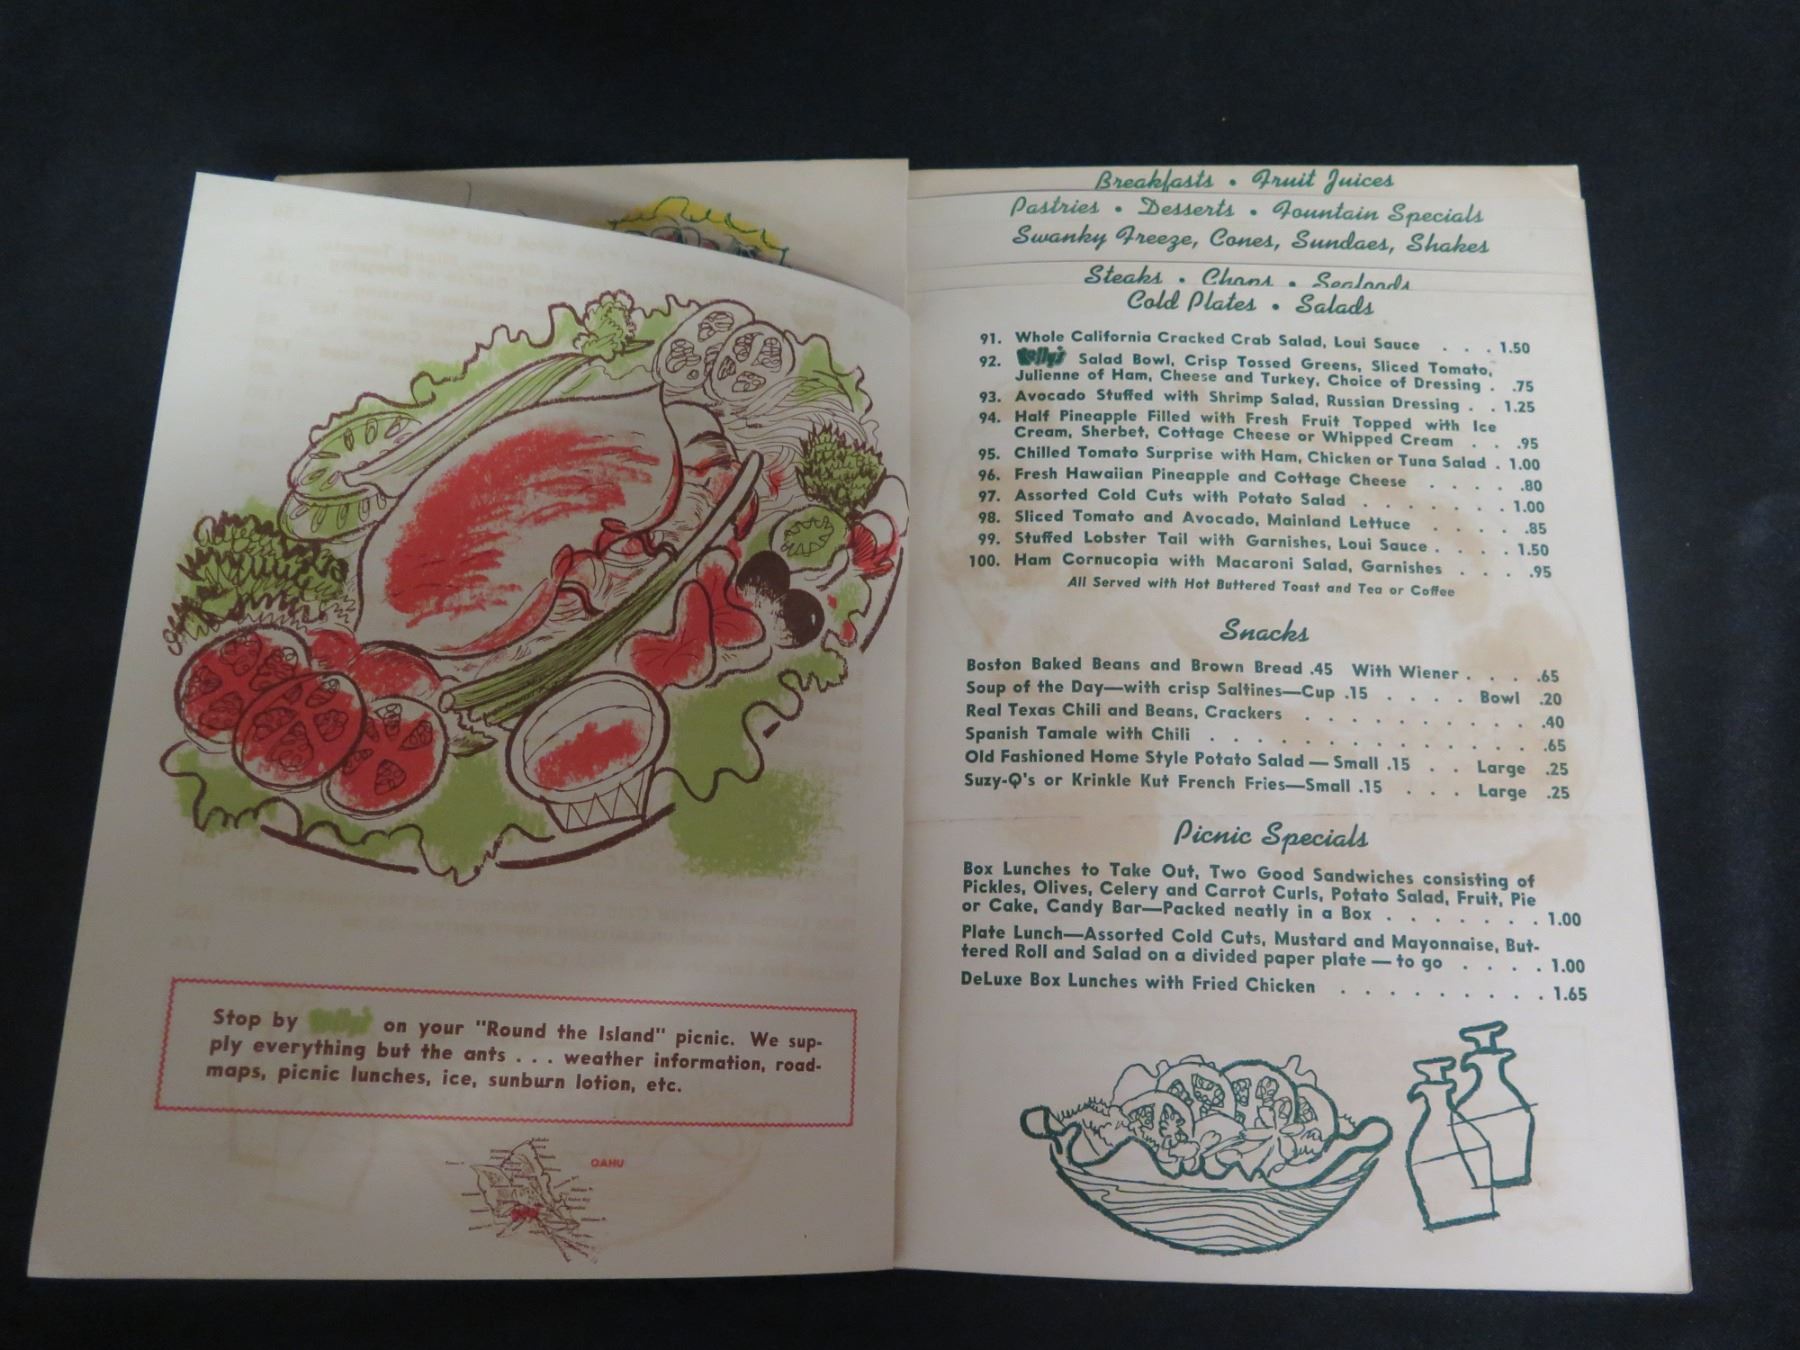 Stop by Kelly's on your "Round the Island" picnic. We sup-
ply everything but the ants . . . weather information, road-
maps, picnic lunches, ice, sunburn lotion, etc.
OAHU
Breakfasts • Fruit Juices
Pastries • Desserts • Fountain Specials
Swanky Freeze, Cones, Sundaes, Shakes
Steaks • Chops • Seafoods
Cold Plates • Salads
91. Whole California Cracked Crab Salad, Loui Sauce . . . 1.50
92. Kelly's Salad Bowl, Crisp Tossed Greens, Sliced Tomato,
Julienne of Ham, Cheese and Turkey, Choice of Dressing . .75
93. Avocado Stuffed with Shrimp Salad, Russian Dressing . . 1.25
94. Half Pineapple Filled with Fresh Fruit Topped with Ice
Cream, Sherbet, Cottage Cheese or Whipped Cream . . .95
95. Chilled Tomato Surprise with Ham, Chicken or Tuna Salad . 1.00
96. Fresh Hawaiian Pineapple and Cottage Cheese . . . . .80
97. Assorted Cold Cuts with Potato Salad . . . . . . . 1.00
98. Sliced Tomato and Avocado, Mainland Lettuce . . . . .85
99. Stuffed Lobster Tail with Garnishes, Loui Sauce . . . . 1.50
100. Ham Cornucopia with Macaroni Salad, Garnishes . . . .95
All Served with Hot Buttered Toast and Tea or Coffee
Snacks
Boston Baked Beans and Brown Bread .45 With Wiener . . . .65
Soup of the Day—with crisp Saltines—Cup .15 . . . . Bowl .20
Real Texas Chili and Beans, Crackers . . . . . . . . . . .40
Spanish Tamale with Chili . . . . . . . . . . . . . . .65
Old Fashioned Home Style Potato Salad — Small .15 . . Large .25
Suzy-Q's or Krinkle Kut French Fries—Small .15 . . . Large .25
Picnic Specials
Box Lunches to Take Out, Two Good Sandwiches consisting of
Pickles, Olives, Celery and Carrot Curls, Potato Salad, Fruit, Pie
or Cake, Candy Bar—Packed neatly in a Box . . . . . . . 1.00
Plate Lunch—Assorted Cold Cuts, Mustard and Mayonnaise, But-
tered Roll and Salad on a divided paper plate — to go . . . . 1.00
DeLuxe Box Lunches with Fried Chicken . . . . . . . . . 1.65